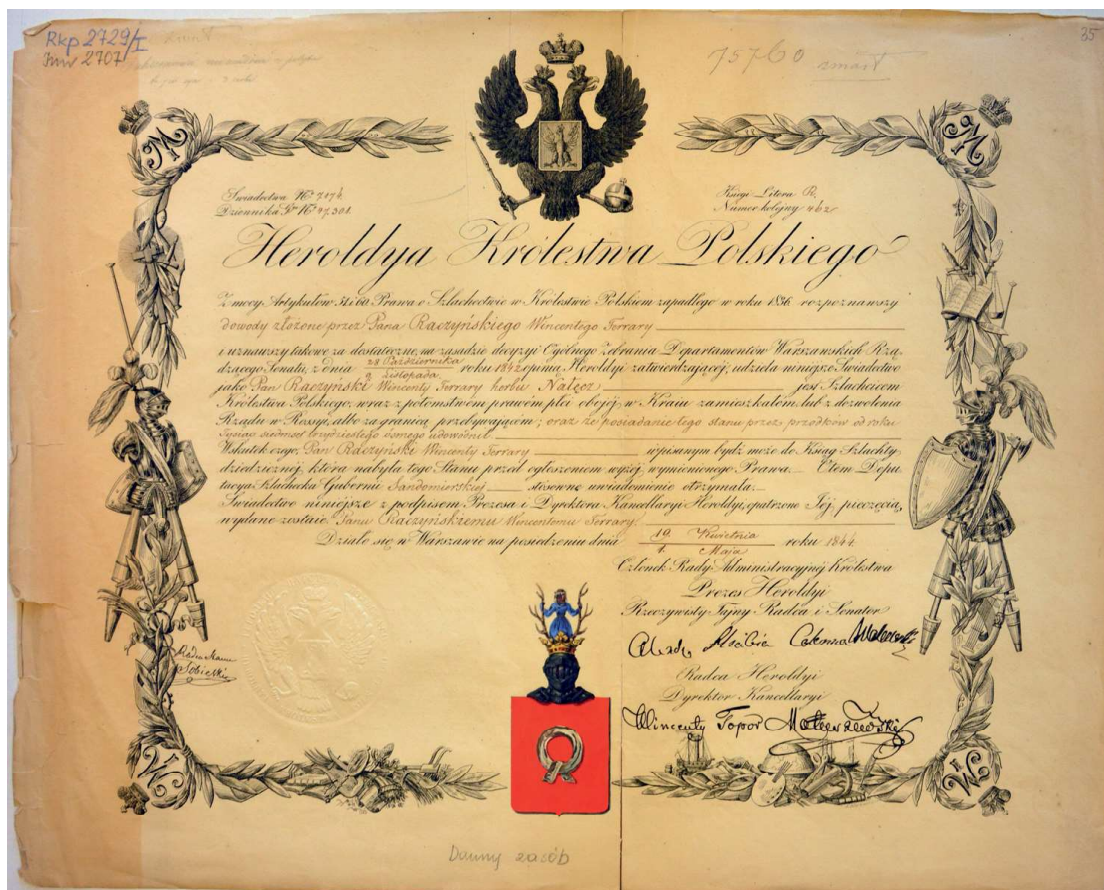 Rkp 2729/I
Inw 2707
75760
zmarł
35
Świadectwa No 7174.
Dziennika No 47,301.
Księgi Litera R.
Numer kolejny 462
Heroldya Królestwa Polskiego
Z mocy Artykułów 51 i 60 Prawa o Szlachectwie w Królestwie Polskiem zapadłego w roku 1836 rozpoznawszy
dowody złożone przez Pana Raczyńskiego Wincentego Ferrary
i uznawszy takowe za dostateczne, na zasadzie decyzyi Ogólnego Zebrania Departamentów Warszawskich Rzą-
dzącego Senatu, z dnia 28 Października / 9 Listopada roku 1842 opinią Heroldyi zatwierdzającej, udziela niniejsze Świadectwo
jako Pan Raczyński Wincenty Ferrary herbu Nałęcz jest Szlachcicem
Królestwa Polskiego, wraz z potomstwem prawem płci obojej, w Kraju zamieszkałem, lub z dozwolenia
Rządu w Rossyi, albo za granicą przebywającem; oraz że posiadanie tego stanu przez przodków od roku
Tysiąc siedmset trzydziestego osmego udowodnił.
Wskutek czego, Pan Raczyński Wincenty Ferrary wpisanym bydź może do Ksiąg Szlachty
dziedzicznej, która nabyła tego Stanu przed ogłoszeniem wyżej wymienionego Prawa. O tem Depu-
tacya Szlachecka Gubernii Sandomierskiej stosowne uwiadomienie otrzymała.
Świadectwo niniejsze z podpisem Prezesa i Dyrektora Kancellaryi Heroldyi, opatrzone Jej pieczęcią,
wydane zostaie Panu Raczyńskiemu Wincentemu Ferrary.
Działo się w Warszawie na posiedzeniu dnia 19 Kwietnia / 1 Maja roku 1844
Członek Rady Administracyjnej Królestwa
Prezes Heroldyi
Rzeczywisty Tajny Radca i Senator
Radca Stanu
Sobieski
Radca Heroldyi
Dyrektor Kancellaryi
Wincenty Topor Matuszewski
Dawny zasób